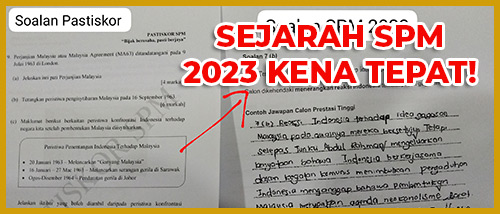 Soalan Pastiskor
PASTISKOR SPM
"Bijak berusaha, pasti berjaya"
9 Perjanjian Malaysia atau Malaysia Agreement (MA63) ditandatangani pada 9
Julai 1963 di London.
(a) Jelaskan isi Perjanjian Malaysia
[4 markah]
(b) Terangkan peristiwa pengisytiharan Malaysia pada 16 September 1963
[6 markah]
(c) Maklumat berikut berkaitan peristiwa konfrontasi Indonesia terhadap
negara kita setelah pembentukan Malaysia diisytiharkan.
Peristiwa Penentangan Indonesia Terhadap Malaysia
• 20 Januari 1963 – Melancarkan "Ganyang Malaysia"
• 16 Januari – 27 Mac 1963 – Melancarkan serangan gerila di Sarawak
• Ogos-Disember 1964 – Pendaratan gerila di Johor
SEJARAH SPM
2023 KENA TEPAT!
Soalan 7 (b)
Calon dikehendaki menerangkan reaksi Indonesia
Contoh Jawapan Calon Prestasi Tinggi
7(b) Reaksi Indonesia terhadap idea gagasan
Malaysia pada awalnya mereka bersetuju. Tetapi
selepas Tunku Abdul Rahman
bahawa Indonesia
Indonesia menganggap bahawa pembentukan
Malaysia merupakan agenda neokolonialisme